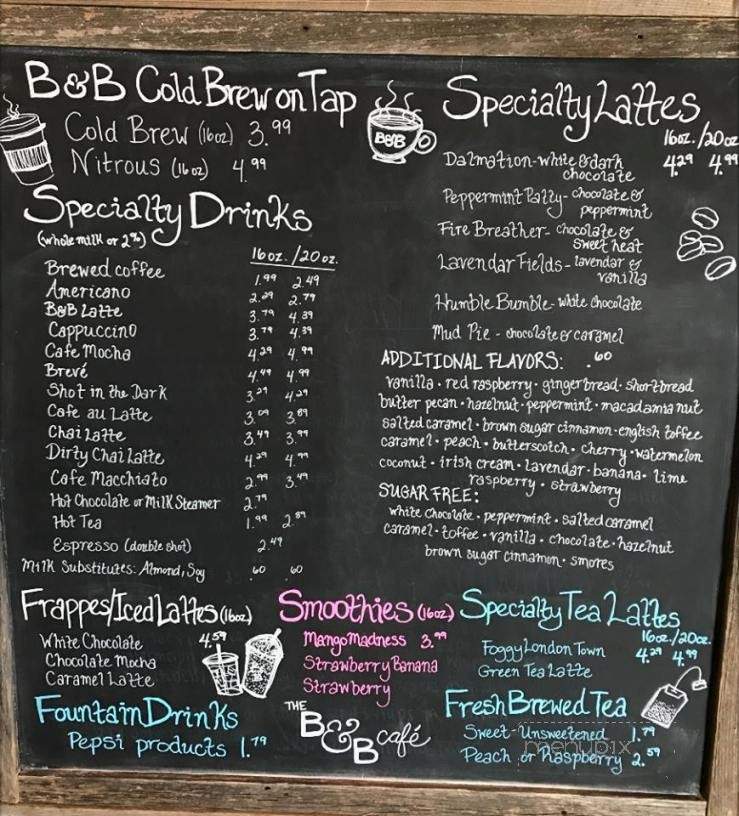 B&B Cold Brew on Tap
Cold Brew (16oz) 3.99
Nitrous (16oz) 4.99
Specialty Drinks
(whole milk or 2%)
16oz. / 20oz.
Brewed coffee 1.99 2.49
Americano 2.29 2.79
B&B Latte 3.79 4.39
Cappuccino 3.79 4.39
Cafe Mocha 4.29 4.99
Brevé 4.49 4.99
Shot in the Dark 3.29 4.29
Cafe au Latte 3.09 3.89
Chai Latte 3.49 3.99
Dirty Chai Latte 4.29 4.99
Cafe Macchiato 2.99 3.49
Hot Chocolate or Milk Steamer 2.79
Hot Tea 1.99 2.89
Espresso (double shot) 2.49
Milk Substitutes: Almond, Soy .60 .60
B&B
Specialty Lattes
16oz. / 20oz
Dalmation - white & dark 4.29 4.99
chocolate
Peppermint Patty - chocolate &
peppermint
Fire Breather - chocolate &
sweet heat
Lavendar Fields - lavendar &
vanilla
Humble Bumble - white chocolate
Mud Pie - chocolate & caramel
ADDITIONAL FLAVORS: .60
vanilla · red raspberry · gingerbread · shortbread
butter pecan · hazelnut · peppermint · macadamia nut
salted caramel · brown sugar cinnamon · english toffee
caramel · peach · butterscotch · cherry · watermelon
coconut · irish cream · lavendar · banana · lime
raspberry · strawberry
SUGAR FREE:
white chocolate · peppermint · salted caramel
caramel · toffee · vanilla · chocolate · hazelnut
brown sugar cinnamon · smores
Frappes/Iced Lattes (16oz)
White Chocolate 4.59
Chocolate Mocha
Caramel Latte
Fountain Drinks
Pepsi products 1.79
Smoothies (16oz)
Mango Madness 3.99
Strawberry Banana
Strawberry
THE
B&B café
Specialty Tea Lattes
16oz. / 20oz.
Foggy London Town 4.29 4.99
Green Tea Latte
Fresh Brewed Tea
Sweet - Unsweetened 1.79
Peach or Raspberry 2.59
menupix